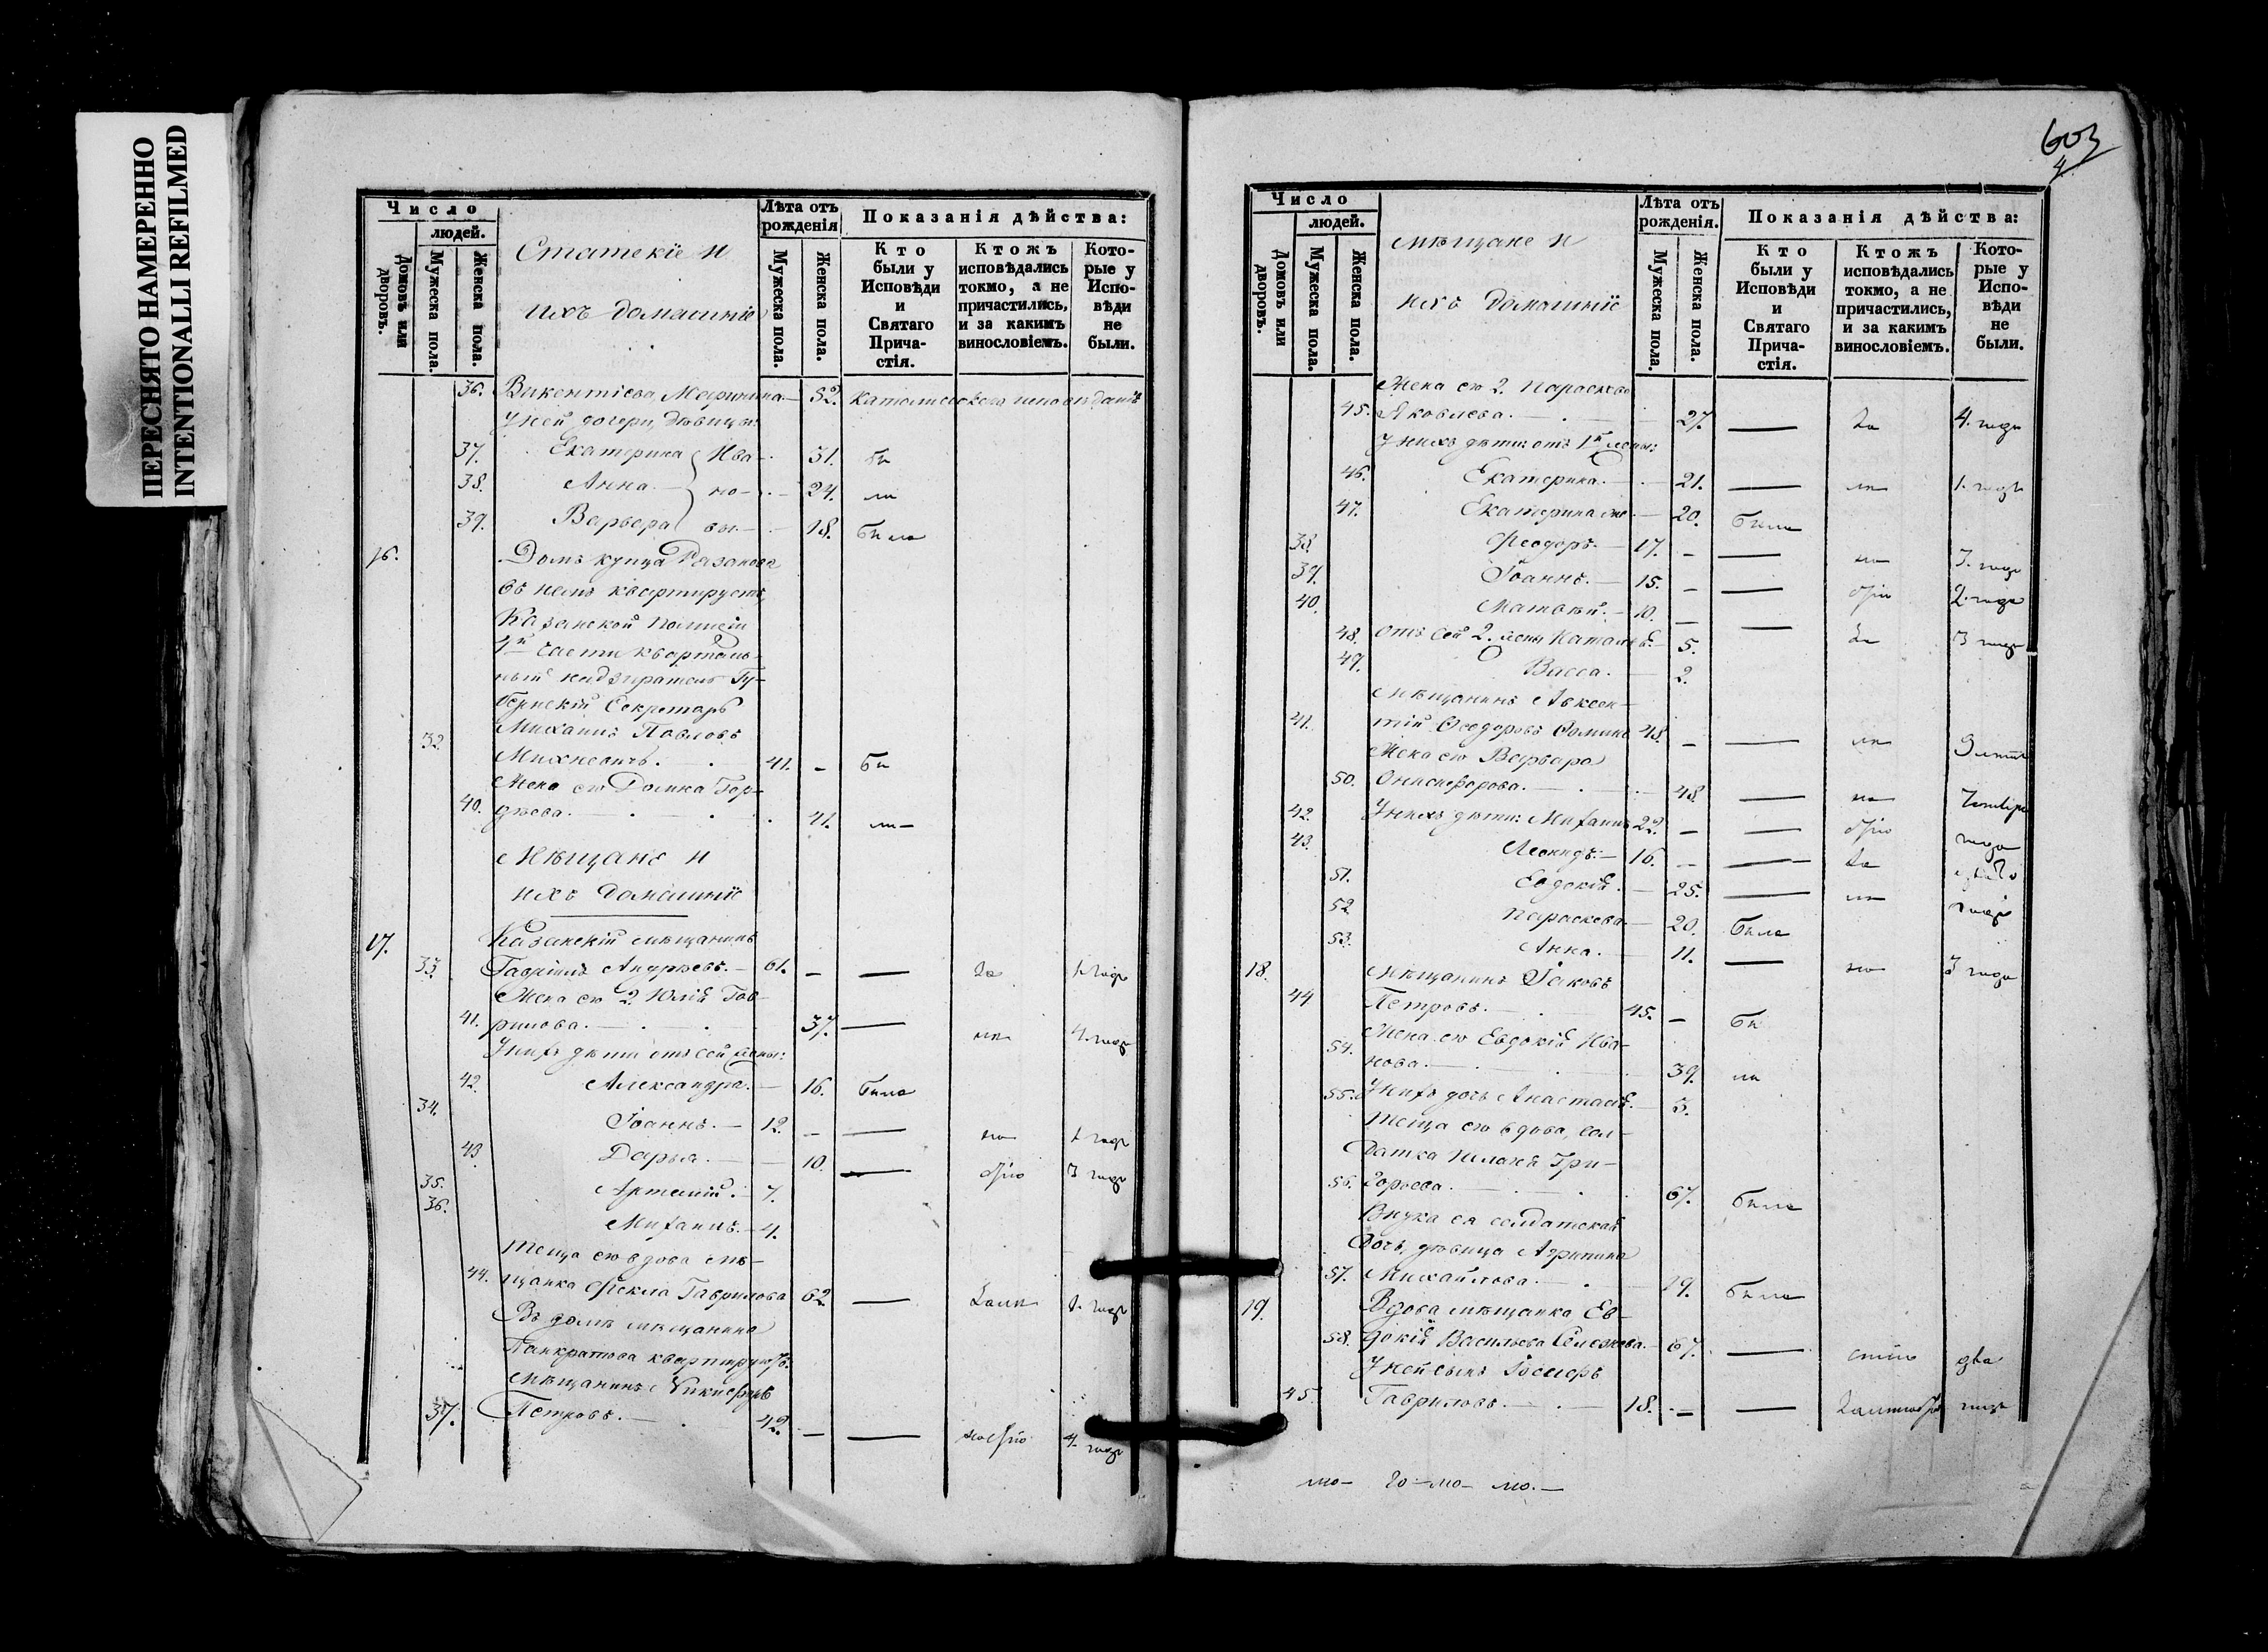 ПЕРЕСНЯТО НАМЕРЕННО
INTENTIONALLI REFILMED
Число
людей.
Домовъ или дворовъ.
Мужеска пола.
Женска пола.
Статскіе и
ихъ домашніе
Лѣта отъ рожденія
Мужеска пола.
Женска пола.
Показанія дѣйства:
Кто были у Исповѣди и Святаго Причастія.
Ктожъ исповѣдались токмо, а не причастились, и за какимъ винословіемъ.
Которые у Исповѣди не были.
36. Викентіева Марина 52. Католическаго исповѣданія
У ней дочери, дѣвицы:
37. Екатерина Ива- 31. бы
38. Анна но- 24. ла
39. Варвара вы 18. была
16. Домъ купца Рязанова
въ немъ квартируетъ,
Казанской полиціи
1й части кварталь-
ный надзиратель Гу-
бернскій Секретарь
Михаилъ Павловъ
32. Михневичъ. 41. – бы
Жена его Домна Гор-
40. дѣева. 41. ла
Мѣщане и
ихъ домашніе
17. Казанскій мѣщанинъ
33. Гавріилъ Андреевъ. 61. –
Жена его 2. Юлія Гав-
41. рилова. 37.
У нихъ дѣти отъ сей жены:
42. Александра. 16. была
34. Іоаннъ. 12. –
43. Дарья. 10.
35. Артемій. 7.
36. Михаилъ. 4.
Теща его вдова мѣ-
44. щанка Ѳекла Гаврилова 62.
Въ домѣ мѣщанина
Панкратова квартируютъ.
Мѣщанинъ Никифоръ
37. Петровъ. 42. –
603
4
Число
людей.
Домовъ или дворовъ.
Мужеска пола.
Женска пола.
мѣщане и
ихъ домашніе
Лѣта отъ рожденія.
Мужеска пола.
Женска пола.
Показанія дѣйства:
Кто были у Исповѣди и Святаго Причастія.
Ктожъ исповѣдались токмо, а не причастились, и за какимъ винословіемъ.
Которые у Исповѣди не были.
Жена его 2. Параскева
45. Яковлева. 27. — 4. года
У нихъ дѣти: отъ 1й жены:
46. Екатерина. 21. — 1. годъ
47. Екатерина же 20. была
38. Ѳеодоръ. 17. –
39. Іоаннъ. 15. – 2. года
40. Матвѣй. 10. – 3 года
48. отъ сей 2. жены Наталья. 5.
49. Васса. 2.
Мѣщанинъ Авксен-
41. тій Ѳеодоровъ Ѳоминъ 48. –
Жена его Варвара
50. Онисифорова. 48.
42. У нихъ дѣти: Михаилъ 22. –
43. Леонидъ. 16. –
51. Евдокія. 25.
52. Параскева. 20. была
53. Анна. 11. 3 года
18. Мѣщанинъ Іаковъ
44 Петровъ. 45. – бы
Жена его Евдокія Ива-
54. нова. 39. ла
55. У нихъ дочь Анастасія. 3.
Теща его вдова, сол-
датка Гри-
56. горьева. 67. была
Внука ея солдатская
дочь, дѣвица Агрипина
57. Михайлова. 19. была
19. Вдова мѣщанка Ев-
58. докія Васильева Селезнева. 67. два
У ней сынъ Іосифъ
45. Гавриловъ. 18. –